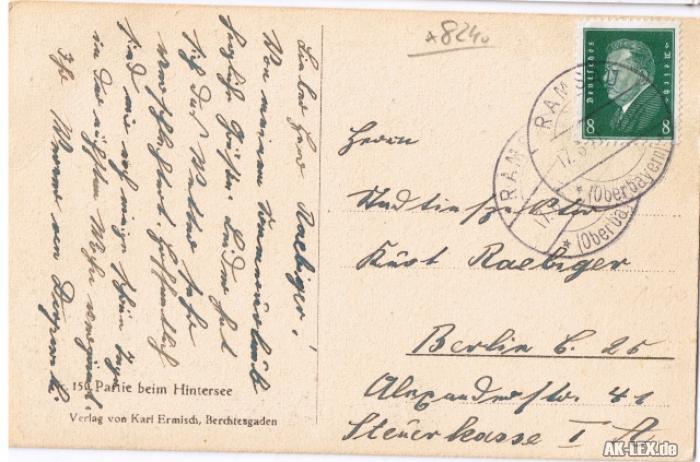 *8240
Deutsches Reich
8 8
RAMSAU
17.6.
* (Oberbayern)
RAM
17.
* (Oberba
Lieber Herr Raebiger!
Von meinem Sommerurlaub
herzliche Grüße. Leider hat
sich das Wetter sehr
verschlechtert. Hoffentlich
sind mir noch einige schöne Tage
in der nächsten Woche
Ihr Werner
Herrn
Stadtinspektor
Kurt Raebiger
Berlin C. 25
Alexanderstr. 41
Steuerkasse I A
Nr. 150 Partie beim Hintersee
Verlag von Karl Ermisch, Berchtesgaden
AK-LEX.de